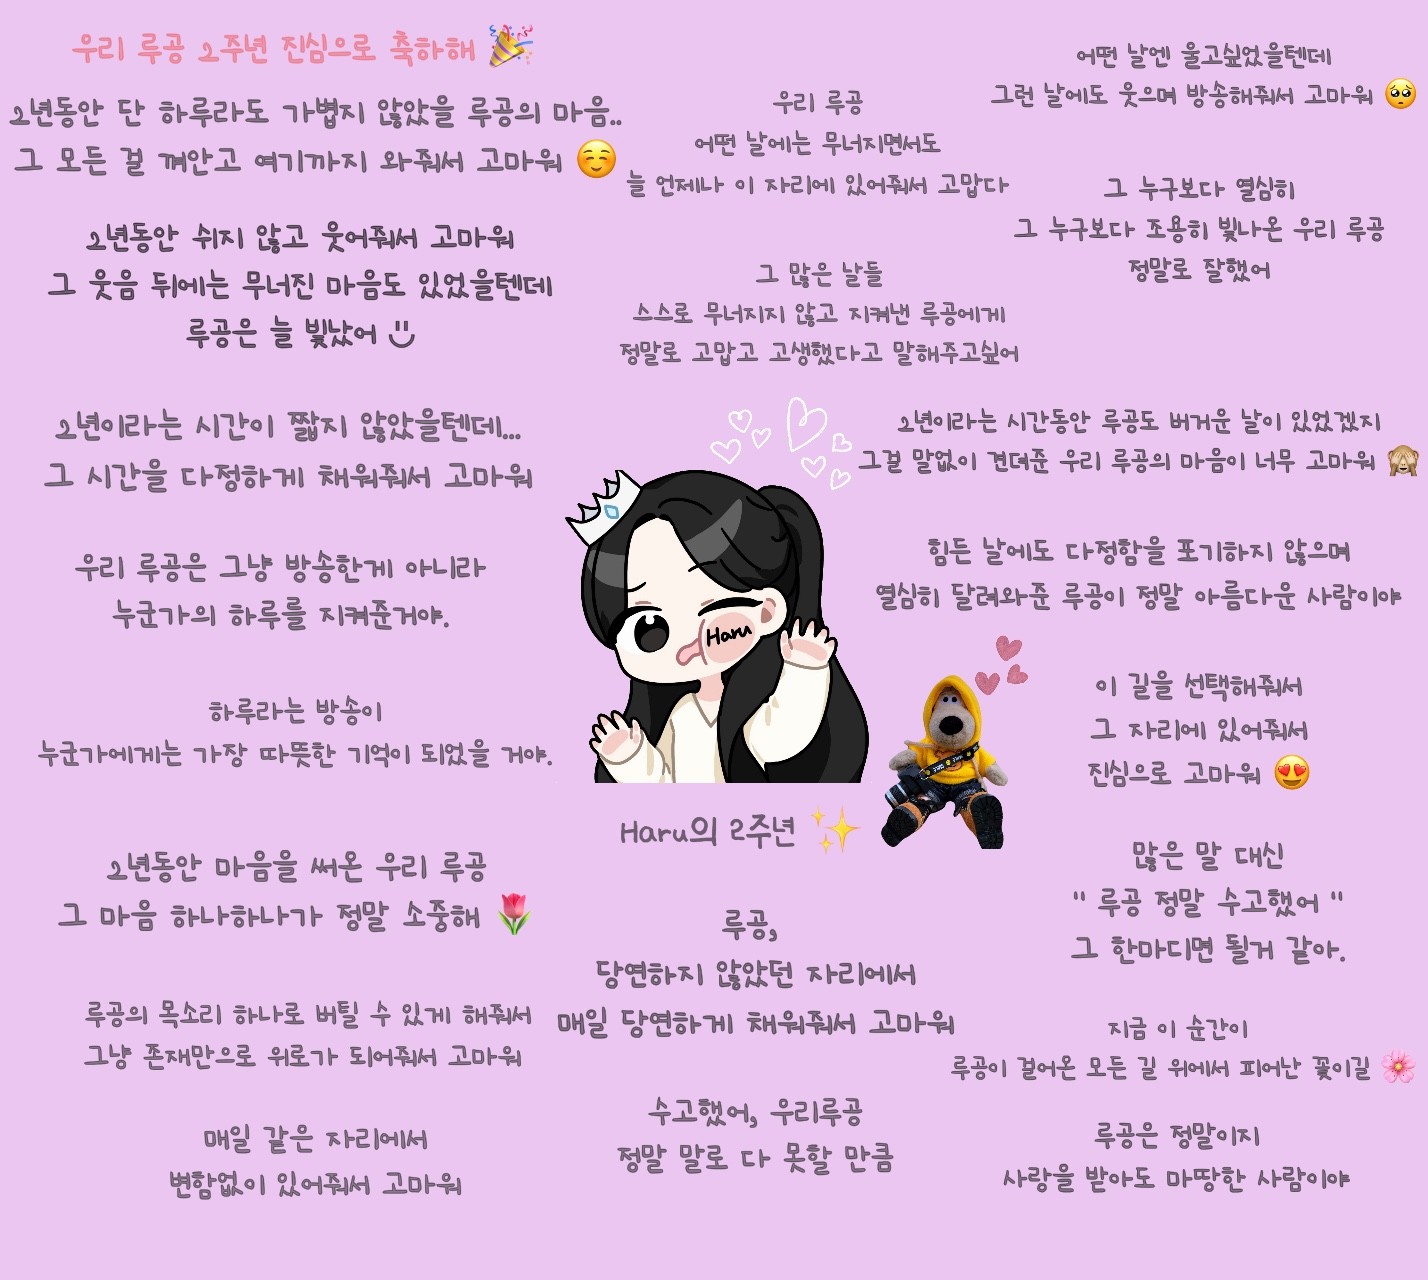 우리 루공 2주년 진심으로 축하해 🎉
2년동안 단 하루라도 가볍지 않았을 루공의 마음..
그 모든 걸 껴안고 여기까지 와줘서 고마워 ☺️
2년동안 쉬지 않고 웃어줘서 고마워
그 웃음 뒤에는 무너진 마음도 있었을텐데
루공은 늘 빛났어 :)
2년이라는 시간이 짧지 않았을텐데...
그 시간을 다정하게 채워줘서 고마워
우리 루공은 그냥 방송한게 아니라
누군가의 하루를 지켜준거야.
하루라는 방송이
누군가에게는 가장 따뜻한 기억이 되었을 거야.
2년동안 마음을 써온 우리 루공
그 마음 하나하나가 정말 소중해 🌷
루공의 목소리 하나로 버틸 수 있게 해줘서
그냥 존재만으로 위로가 되어줘서 고마워
매일 같은 자리에서
변함없이 있어줘서 고마워
우리 루공
어떤 날에는 무너지면서도
늘 언제나 이 자리에 있어줘서 고맙다
그 많은 날들
스스로 무너지지 않고 지켜낸 루공에게
정말로 고맙고 고생했다고 말해주고싶어
Haru
Haru의 2주년 ✨
루공,
당연하지 않았던 자리에서
매일 당연하게 채워줘서 고마워
수고했어, 우리루공
정말 말로 다 못할 만큼
어떤 날엔 울고싶었을텐데
그런 날에도 웃으며 방송해줘서 고마워 🥺
그 누구보다 열심히
그 누구보다 조용히 빛나온 우리 루공
정말로 잘했어
2년이라는 시간동안 루공도 버거운 날이 있었겠지
그걸 말없이 견뎌준 우리 루공의 마음이 너무 고마워 🙈
힘든 날에도 다정함을 포기하지 않으며
열심히 달려와준 루공이 정말 아름다운 사람이야
이 길을 선택해줘서
그 자리에 있어줘서
진심으로 고마워 😍
많은 말 대신
" 루공 정말 수고했어 "
그 한마디면 될거 같아.
지금 이 순간이
루공이 걸어온 모든 길 위에서 피어난 꽃이길 🌸
루공은 정말이지
사랑을 받아도 마땅한 사람이야